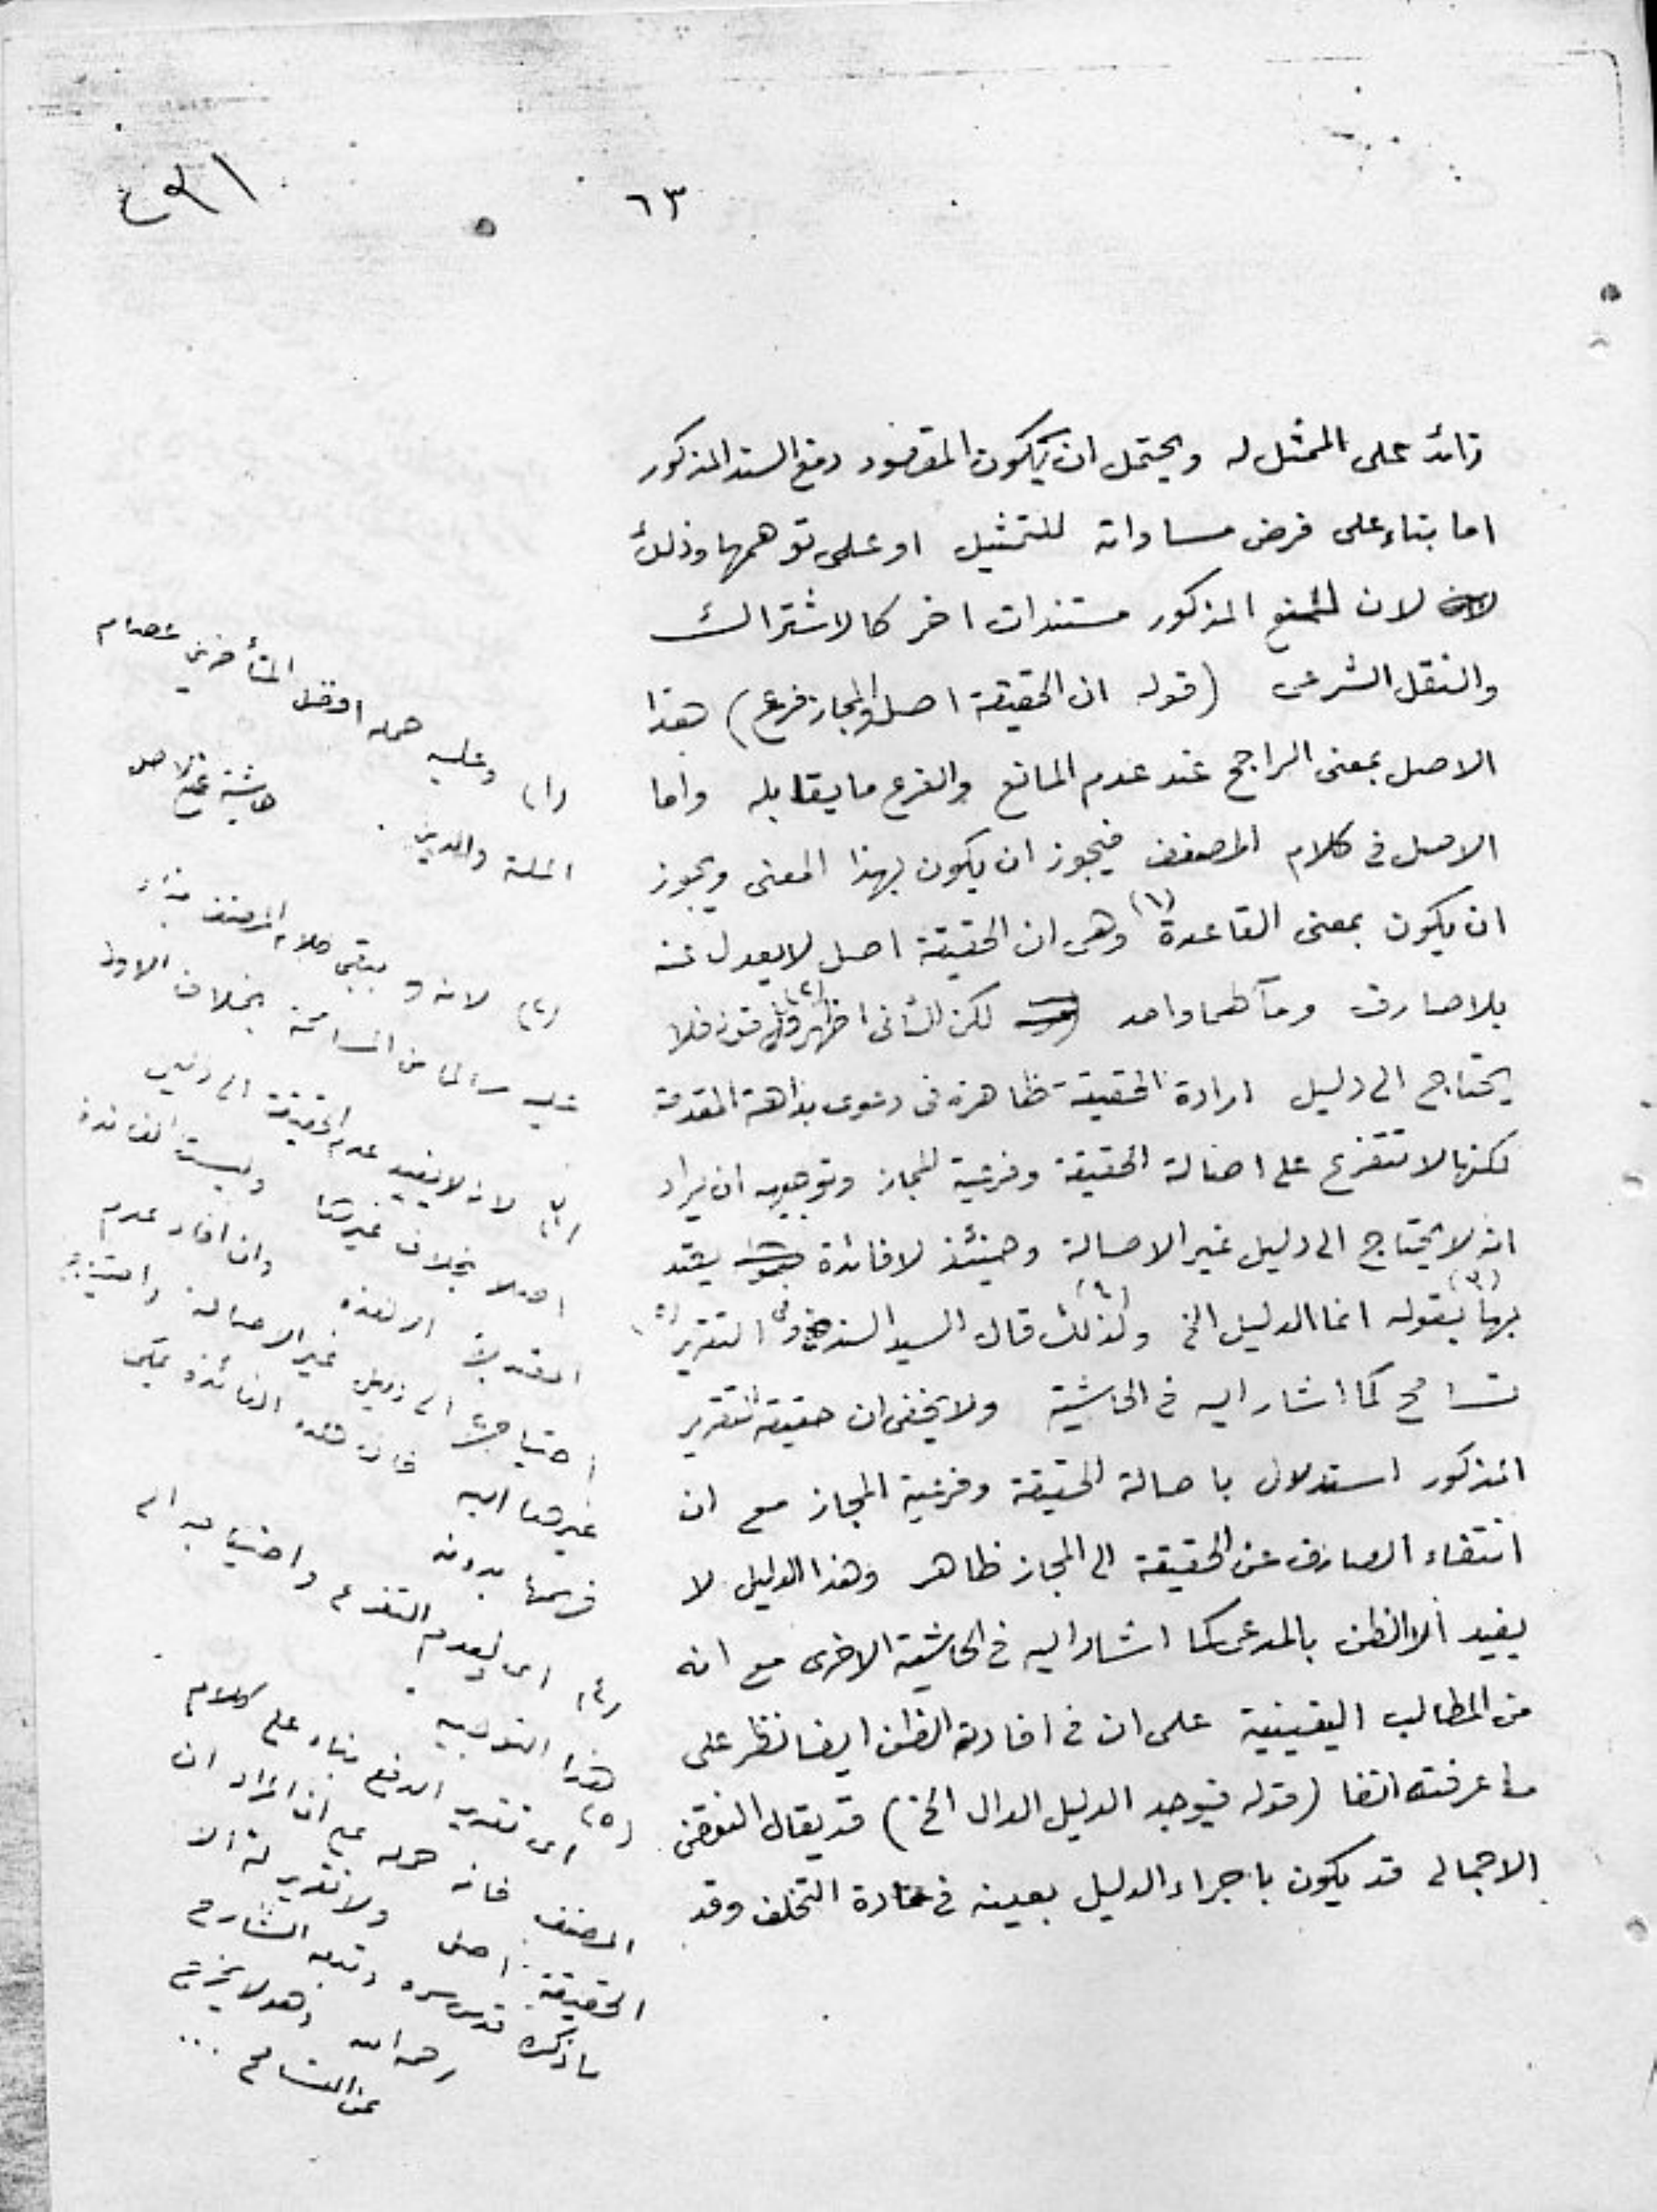 ٦٣
زائد على الممثل له ويحتمل ان يكون المقصود دفع السند المذكور
اما بناء على فرض مساواته للتمثيل او على توهمها وذلك
لان للمنع المذكور مستندات اخر كالاشتراك
والنقل الشرعى (قوله ان الحقيقة اصل والمجاز فرع) هذا
الاصل بمعنى الراجح عند عدم المانع والفرع ما يقابله واما
الاصل فى كلام المصنف فيجوز ان يكون بهذا المعنى ويجوز
ان يكون بمعنى القاعدة (١) وهى ان الحقيقة اصل لا يعدل عنه
بلا صارف ومآلهما واحد لكن الثانى اظهر (٢) فلا
يحتاج الى دليل ارادة الحقيقة ظاهرة فى دعوى بداهة المقدمة
لكنها لا تتفرع على اصالة الحقيقة وفرعية المجاز وتوجيهه ان يراد
انه لا يحتاج الى دليل غير الاصالة وحينئذ لا فائدة يعتد
بها (٣) بقوله انما الدليل الخ ولذلك (٤) قال السيد السند وفى التقرير (٥)
تسامح كما اشار اليه فى الحاشية ولا يخفى ان حقيقة التقرير
المذكور استدلال باصالة الحقيقة وفرعية المجاز مع ان
انتفاء الصارف عن الحقيقة الى المجاز ظاهر وهذا الدليل لا
يفيد الا الظن بالمدعى كما اشار اليه فى الحاشية الاخرى مع انه
من المطالب اليقينية على ان فى افادته الظن ايضا نظر على
ما عرفته انفا (قوله فيوجد الدليل الدال الخ) قد يقال النقض
الاجمالى قد يكون باجراء الدليل بعينه فى مادة التخلف وقد
(١) وعليه حمله افضل المتأخرين عصام
الملة والدين.
(٢) لانه يبقى كلام المصنف
سالما من المسامحة بخلاف الاول
(٣) لانه لا يفيد عدم الحقيقة الى دليل
اصلا بخلاف غيرها وليست الفائدة
وان افاد عدم
احتياجها الى دليل غير الاصالة واحتياج
غيرها اليه فان هذه الفائدة يمكن
فهمها بدونه
(٤) اى لعدم التفرع واحتياجه الى
هذا التوجيه
(٥) اى تقرير الدفع بناء على كلام
المصنف فانه حمله على ان المراد ان
الحقيقة اصل ولا تقدير له الا
ما ذكره قدس سره وتبعه الشارح
رحمه الله وهو لا يخرج
عن التسامح ...